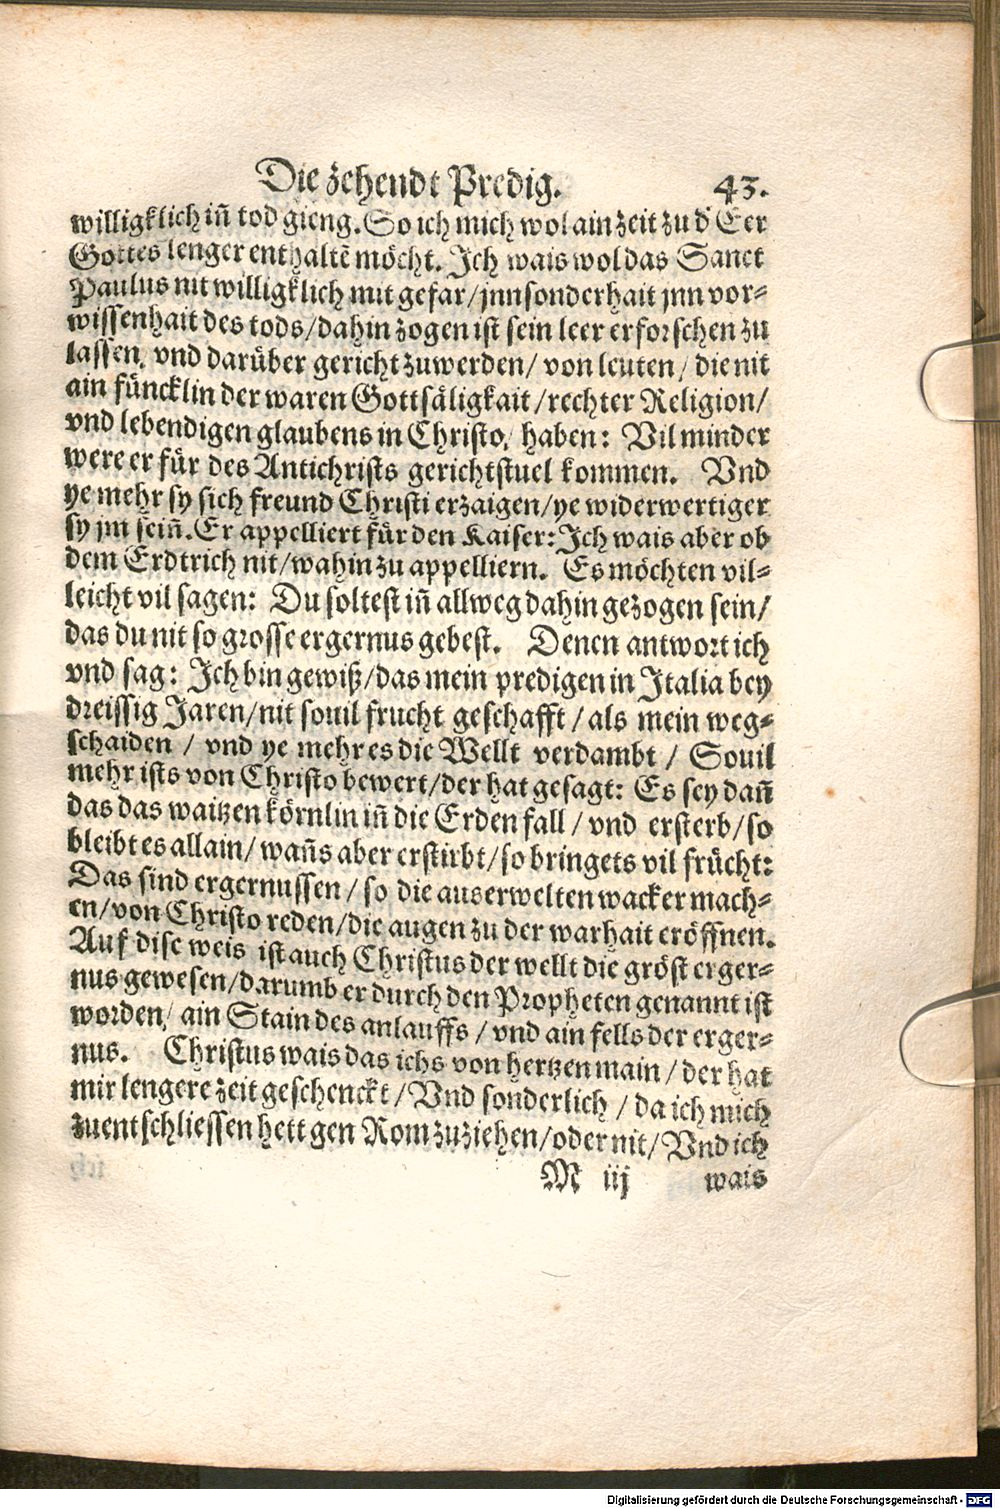 Die zehendt Predig. 43.
willigklich iñ tod gieng. So ich mich wol ain zeit zu d' Eer
Gottes lenger enthaltẽ möcht. Ich wais wol das Sanct
Paulus nit willigklich mit gefar/ jnnsonderhait jnn vor-
wissenhait des tods/ dahin zogen ist sein leer erforschen zu
lassen, vnd darüber gericht zuwerden/ von leuten/ die nit
ain füncklin der waren Gottsäligkait/ rechter Religion/
vnd lebendigen glaubens in Christo/ haben: Vil minder
were er für des Antichrists gerichtstuel kommen. Vnd
ye mehr sy sich freund Christi erzaigen/ ye widerwertiger
sy jm seiñ. Er appelliert für den Kaiser: Ich wais aber ob
dem Erdtrich nit/ wahin zu appelliern. Es möchten vil-
leicht vil sagen: Du soltest iñ allweg dahin gezogen sein/
das du nit so grosse ergernus gebest. Denen antwort ich
vnd sag: Ich bin gewiß/ das mein predigen in Italia bey
dreissig Jaren/ nit souil frucht geschafft/ als mein weg-
schaiden/ vnd ye mehr es die Wellt verdambt/ Souil
mehr ists von Christo bewert/ der hat gesagt: Es sey dañ
das das waitzen körnlin iñ die Erden fall/ vnd ersterb/ so
bleibt es allain/ wañs aber erstirbt/ so bringets vil frücht:
Das sind ergernussen/ so die auserwelten wacker mach-
en/ von Christo reden/ die augen zu der warhait eröffnen.
Auf dise weis ist auch Christus der wellt die gröst erger-
nus gewesen/ darumb er durch den Propheten genannt ist
worden/ ain Stain des anlauffs/ vnd ain fells der erger-
nus. Christus wais das ichs von hertzen main/ der hat
mir lengere zeit geschenckt/ Vnd sonderlich/ da ich mich
zuentschliessen hett gen Rom zuziehen/ oder nit/ Vnd ich
M iij wais
Digitalisierung gefördert durch die Deutsche Forschungsgemeinschaft - DFG